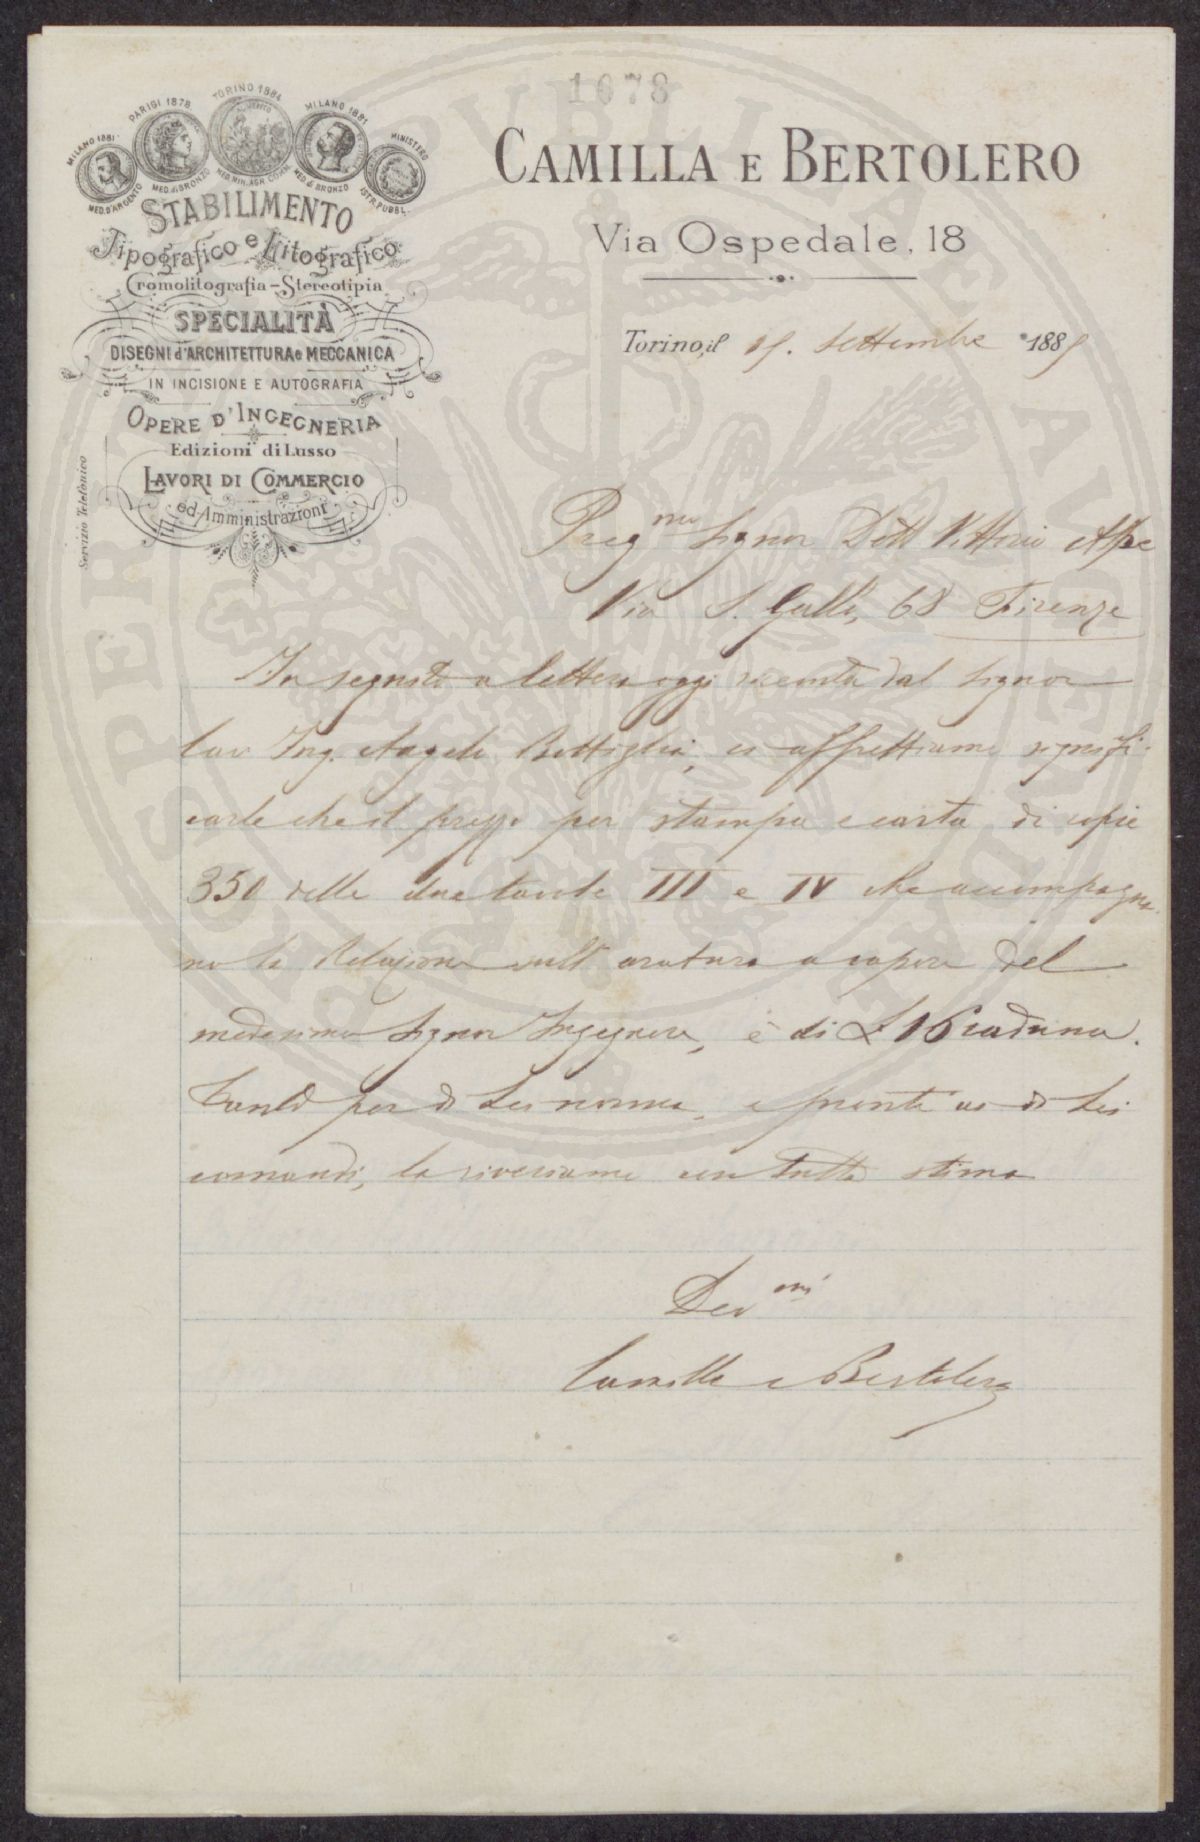 1078
MILANO 1881
PARIGI 1878
TORINO 1884
MILANO 1881
MINISTERO
MED. D'ARGENTO
MED. di BRONZO
MED. MIN. AGR. COMM.
MED. di BRONZO
ISTR. PUBBL.
STABILIMENTO
Tipografico e Litografico
Cromolitografia-Stereotipia
SPECIALITÀ
DISEGNI d'ARCHITETTURA e MECCANICA
IN INCISIONE E AUTOGRAFIA
OPERE D'INGEGNERIA
Edizioni di Lusso
LAVORI DI COMMERCIO
ed Amministrazioni
Servizio Telefonico
CAMILLA E BERTOLERO
Via Ospedale, 18
Torino, il Settembre 188
Preg mo Signor Dott Vittorio Alpe
Via S. Gallo, 68 Firenze
In seguito a lettera oggi ricevuta dal Signor
Cav Ing. Angelo Bottiglia, ci affrettiamo signifi-
carle che il prezzo per stampa e carta di copie
350 delle due tavole III e IV che accompagna-
no la Relazione sull'aratura a vapore del
medesimo Signor Ingegnere, è di L 16 caduna.
Tanto per di Lei norma, e pronti ai di Lei
comandi, la riveriamo con tutta stima
Dev mi
Camilla e Bertolero